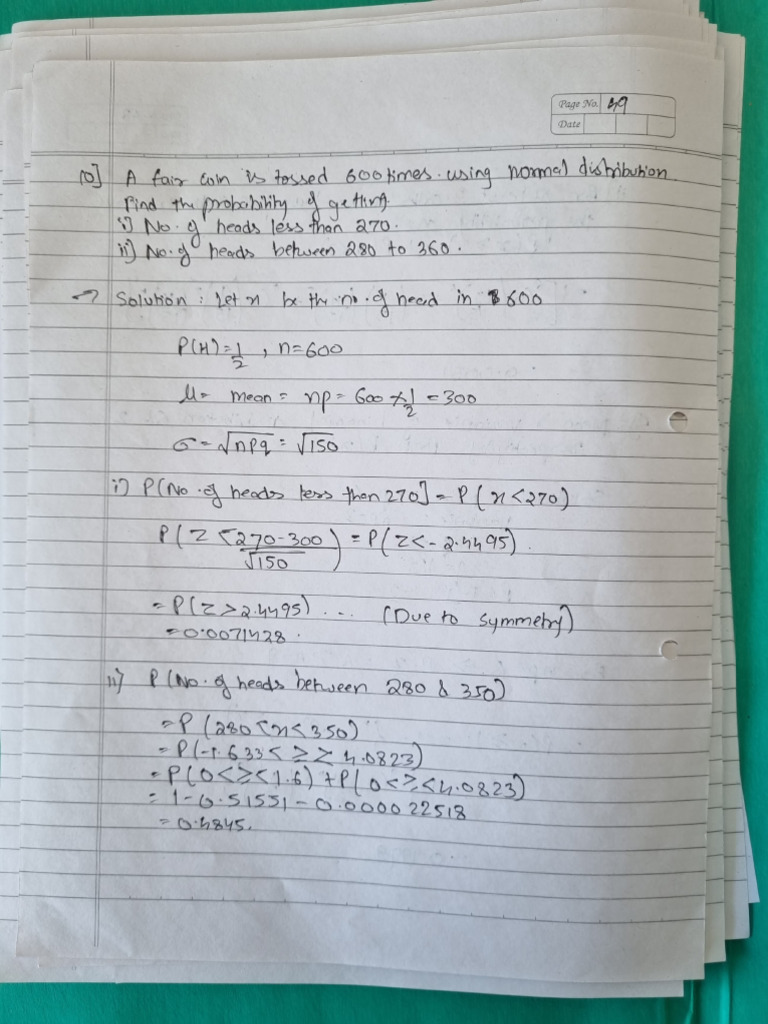 Page No. 49
Date
10] A fair coin is tossed 600 times. using normal distribution
Find the probability of getting.
i) No. of heads less than 270.
ii) No. of heads between 280 to 360.
→ Solution : Let x be the no. of head in 600
P(H) = 1/2 , n=600
μ = mean = np = 600 × 1/2 = 300
σ = √npq = √150
i) P(No. of heads less then 270] = P(x<270)
P(Z < 270-300/√150) = P(Z<-2.4495).
= P(Z>2.4495) ... (Due to symmetry)
= 0.0071428.
ii) P(No. of heads between 280 & 350)
= P(280<x<350)
= P(-1.633< Z ≤ 4.0823)
= P(0<Z<1.6) + P(0<Z<4.0823)
= 1-0.51551-0.000022518
= 0.4845.